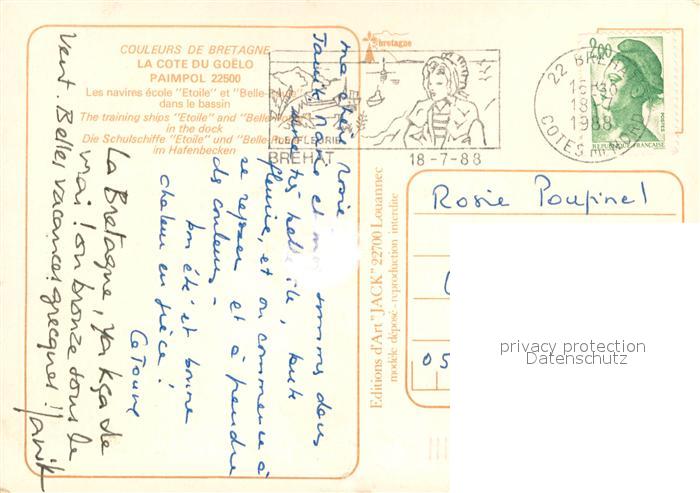 bretagne
COULEURS DE BRETAGNE
LA COTE DU GOËLO
PAIMPOL 22500
Les navires école "Etoile" et "Belle-Poule"
dans le bassin
The training ships "Etoile" and "Belle-Poule"
in the dock
Die Schulschiffe "Etoile" und "Belle-Poule"
im Hafenbecken
FLEURIE
BREHAT
18-7-88
22 BREHAT
18
1988
COTES DU NORD
2,00
POSTES
REPUBLIQUE FRANÇAISE
ma chère Rosie
Janik et moi sommes dans
une très belle île, toute
fleurie, et on commence à
se reposer et à prendre
des couleurs -
bon été et bonne
chaleur en Grèce !
Catoune
La Bretagne, ya kça de
vrai ! on bronze sous le
vent. Belles vacances grecques ! Janik
Editions d'Art "JACK" 22700 Louannec
modèle déposé - reproduction interdite
Rosie Poupinel
05
privacy protection
Datenschutz